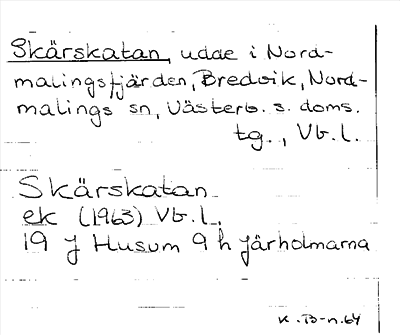 Skärskatan, udde i Nord-
malingsfjärden, Bredvik, Nord-
malings sn, Västerb. s. doms.
tg., Vb. l.
Skärskatan
ek (1963) Vb. l.
19 J Husum 9 h Järholmarna
K. B-n. 64